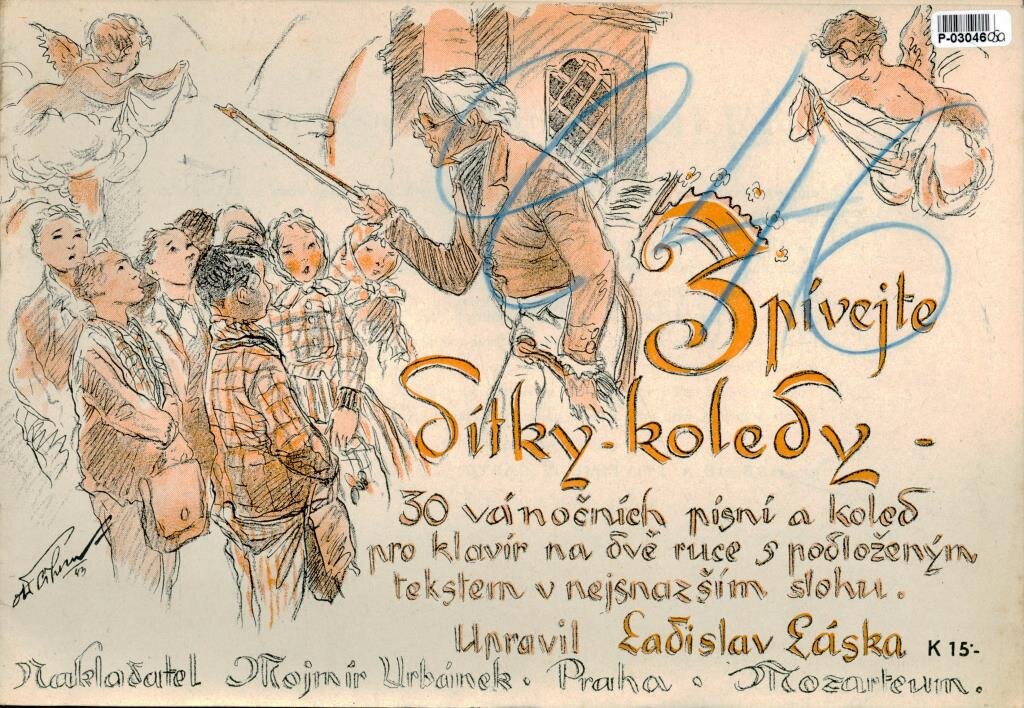 P-03046050
Zpívejte
dítky-koledy -
30 vánočních písní a koled
pro klavír na dvě ruce s podloženým
tekstem v nejsnazším slohu.
Upravil Ladislav Láska K 15·-
Nakladatel Mojmír Urbánek · Praha · Mozarteum.